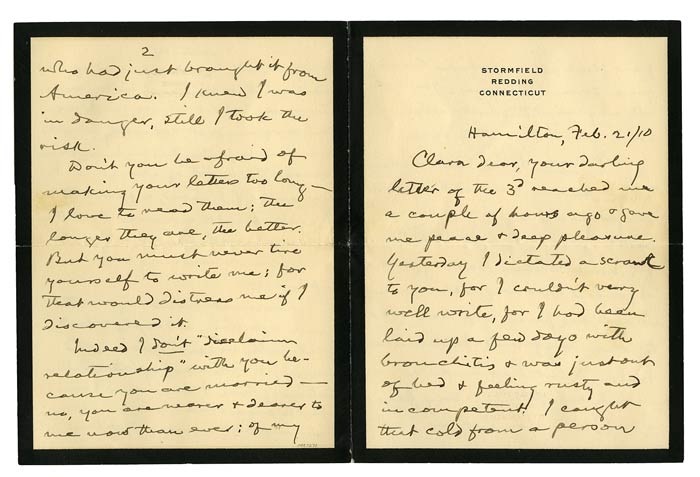 STORMFIELD
REDDING
CONNECTICUT
Hamilton, Feb. 21/10
Clara dear, your darling
letter of the 3d reached me
a couple of hours ago & gave
me peace & deep pleasure.
Yesterday I dictated a scrawl
to you, for I couldn't very
well write, for I had been
laid up a few days with
bronchitis & was just out
of bed & feeling rusty and
incompetent. I caught
that cold from a person
2
who had just brought it from
America. I knew I was
in danger, still I took the
risk.
Don't you be afraid of
making your letters too long—
I love to read them; the
longer they are, the better.
But you must never tire
yourself to write me; for
that would distress me if I
discovered it.
Indeed I don't "disclaim
relationship" with you be-
cause you are married—
no, you are nearer & dearer to
me now than ever; of my